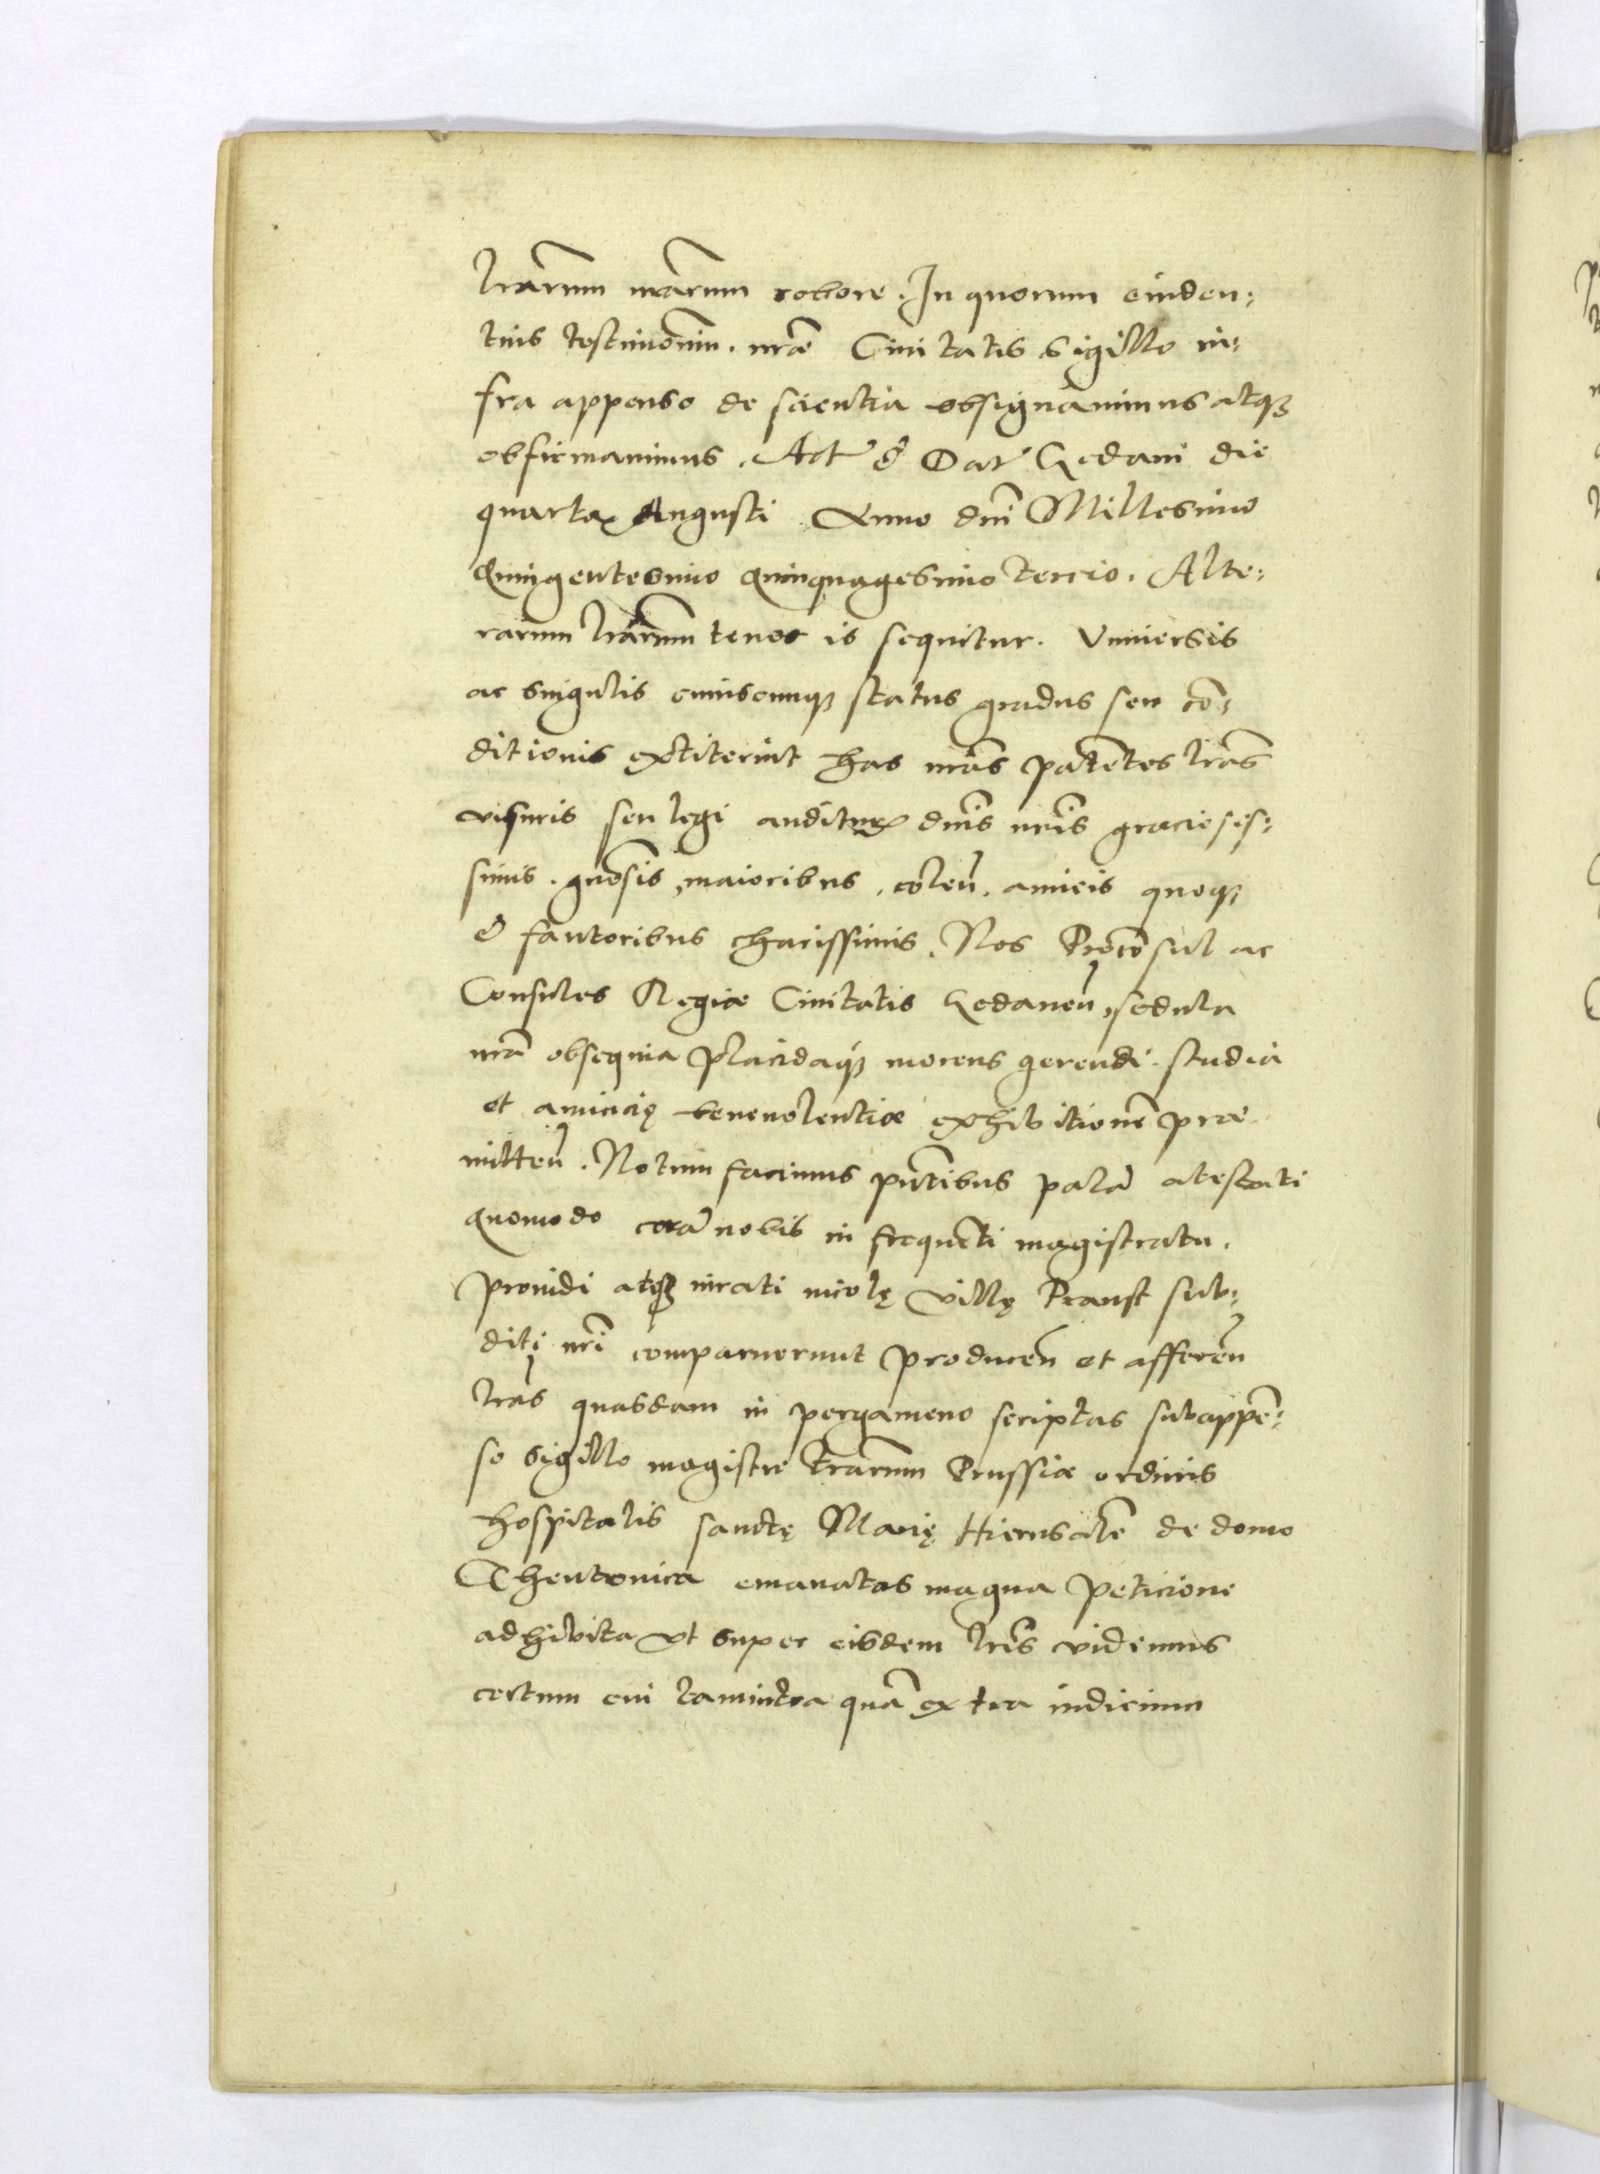 lrarum nrarum robore. In quorum euiden:
tius testimoniu. nrae Ciuitatis Sigillo in:
fra appenso de scientia obsignauimus atq;
obfirmauimus. Act & Dat Gedani die
quarta Augusti Anno dni Millesimo
Quingentesimo quinquagesimo tercio. Alte:
rarum lrarum tenor is sequitur. Vniuersis
ac singulis cuiuscunq; status gradus seu co:
ditionis extiterint has nras patentes lras
visuris seu legi auditur dnis nris graciosis:
simis. gnosis, maioribus, colen. amicis quoq;
& fautoribus charissimis. Nos Procosul ac
Consules Regiae Ciuitatis Gedanen, sedula
nra obsequia placidaq; morem gerendi studia
et amicicię beneuolentiae exhibitione prae
mitten. Notum facimus pntibus pala atestati
quomodo cora nobis in frequeti magistratu.
prouidi atq; iurati incolę villę Pranst sub:
diti nri comparuerunt producen et afferen
lras quasdam in pergameno scriptas subappe:
so sigillo magistri Frarum Prussiae ordinis
hospitalis sanctę Marię Hierusale de domo
Theutonica emanatas magna peticione
adhibita vt super eisdem lris videmus
certum cui tam intra qua extra iudicium